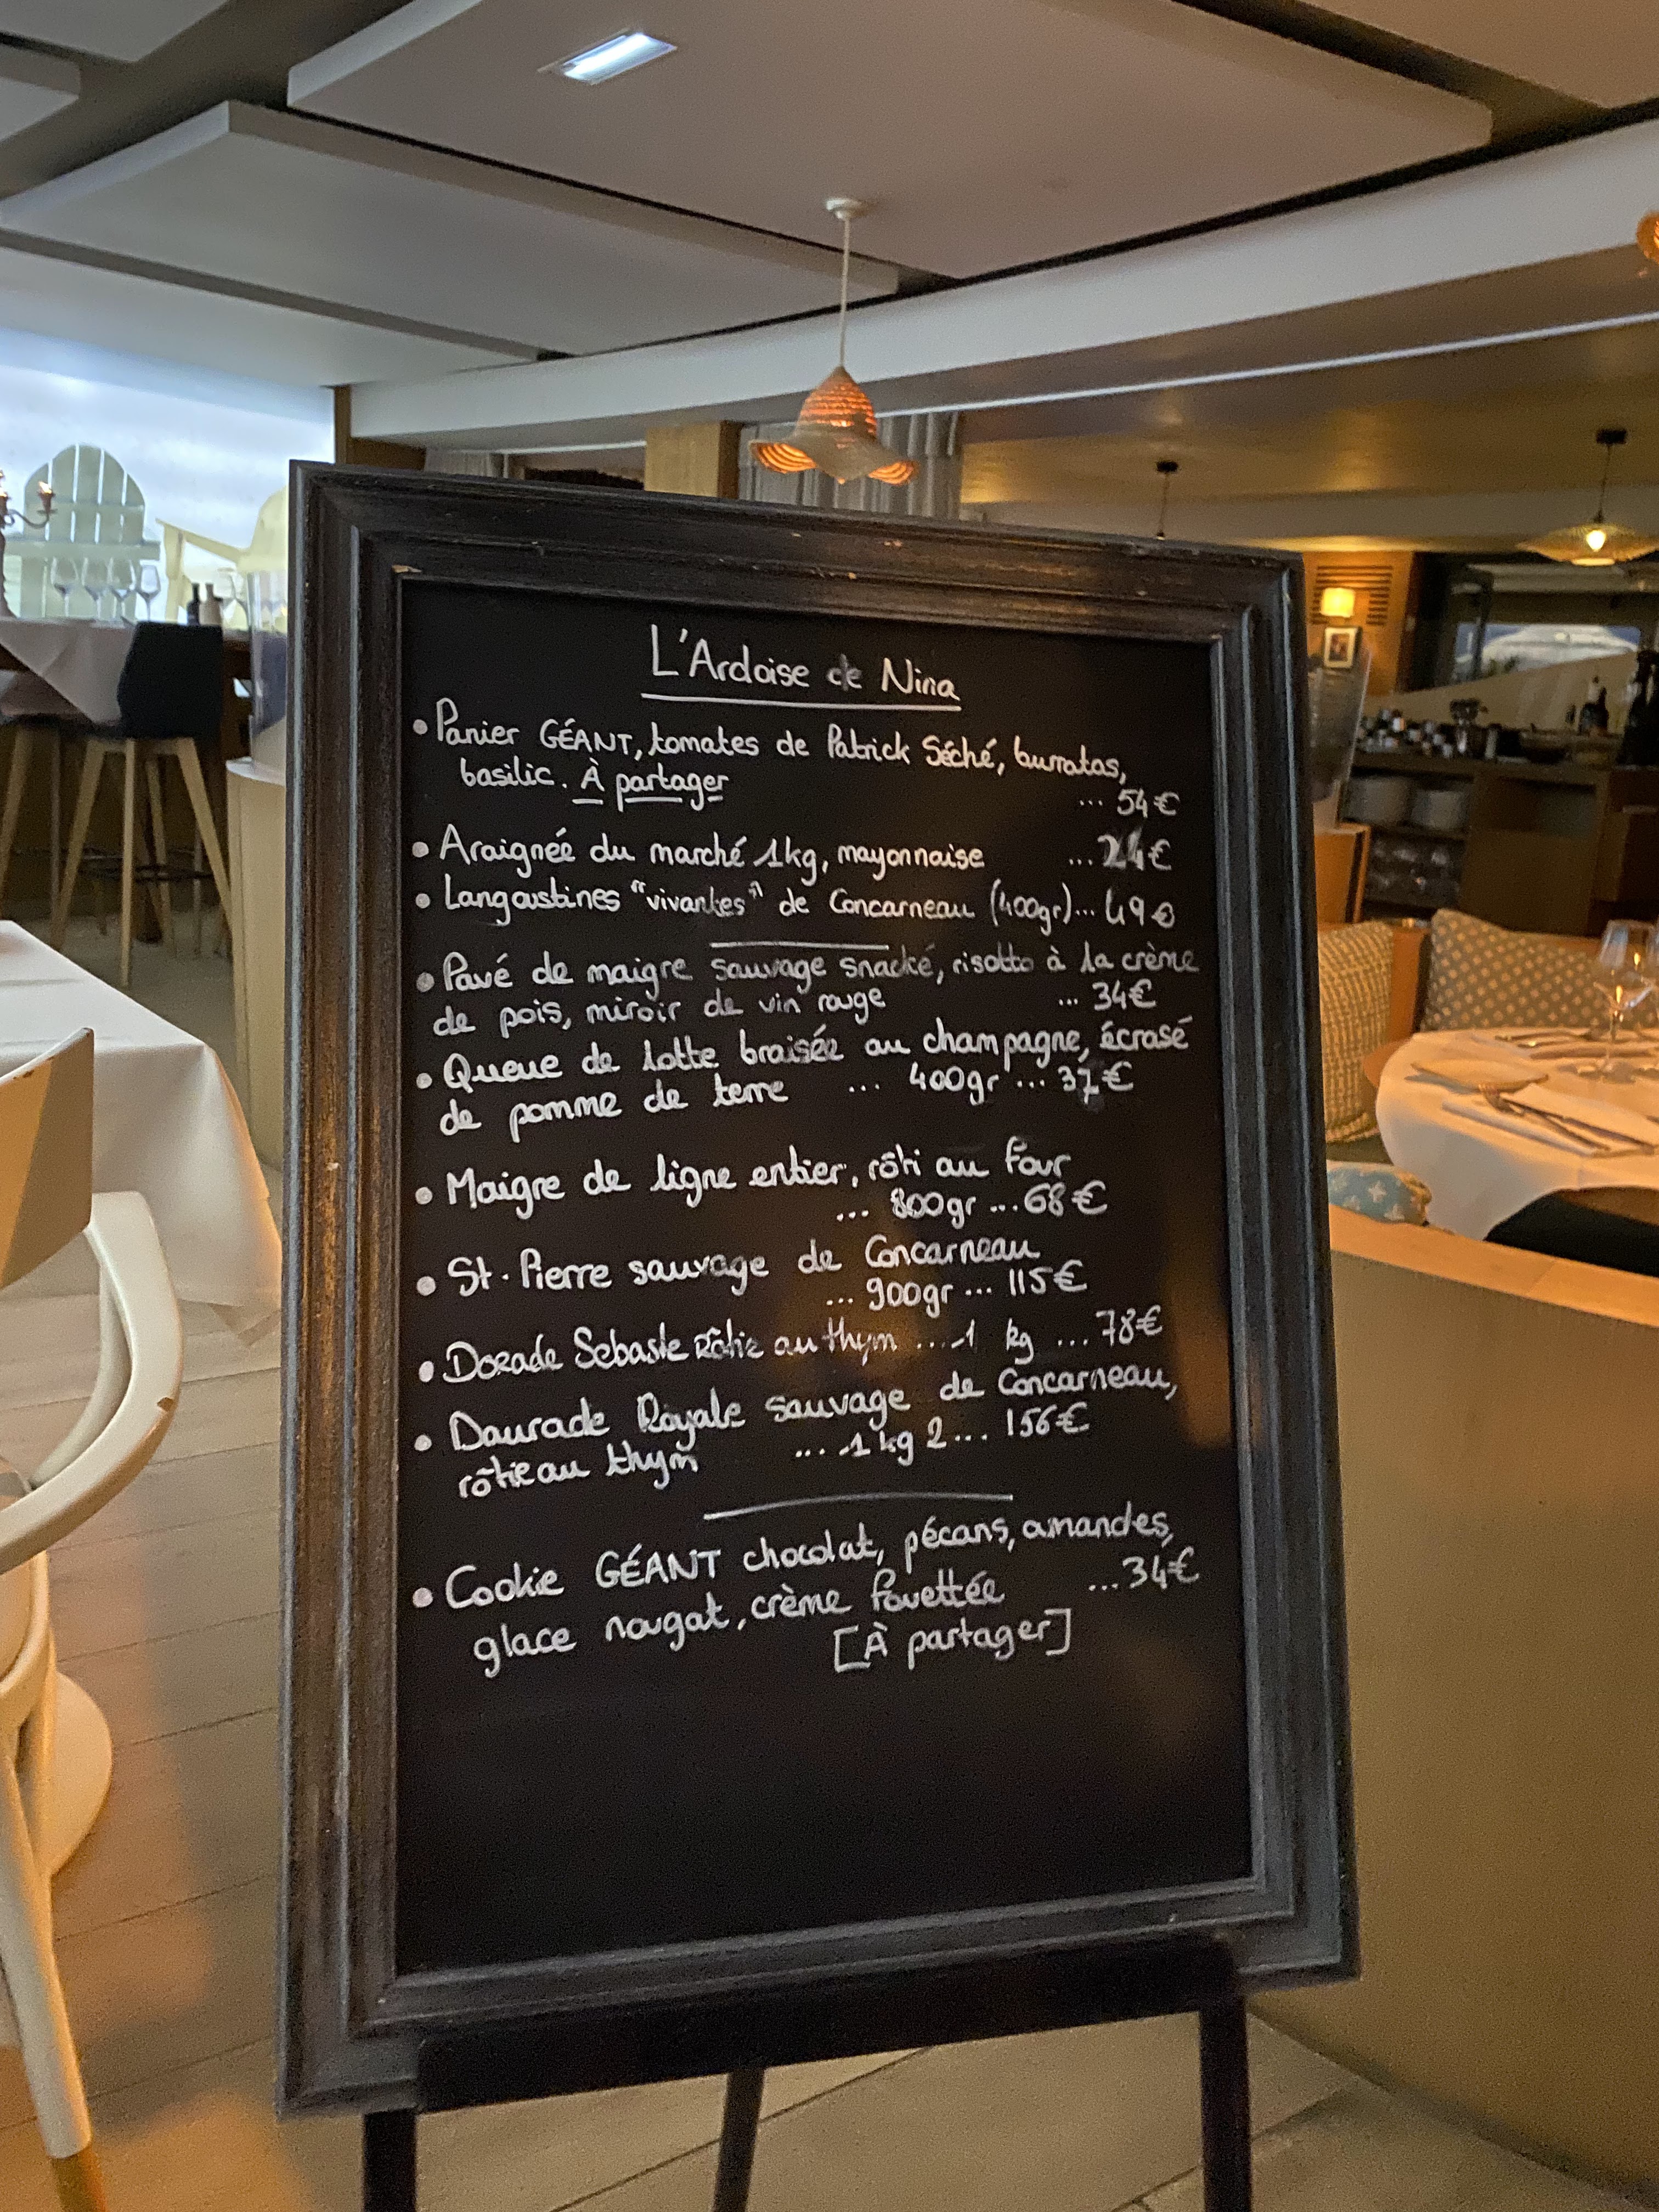 L'Ardoise de Nina
• Panier GÉANT, tomates de Patrick Séché, burratas,
basilic. À partager
... 54€
• Araignée du marché 1kg, mayonnaise ... 24€
• Langoustines "vivantes" de Concarneau (400gr)... 49€
• Pavé de maigre sauvage snacké, risotto à la crème
de pois, miroir de vin rouge ... 34€
• Queue de lotte braisée au champagne, écrasé
de pomme de terre ... 400gr ... 37€
• Maigre de ligne entier, rôti au four
... 800gr ... 68€
• St. Pierre sauvage de Concarneau
... 900gr ... 115€
• Dorade Sebaste Rôtie au thym ... 1 kg ... 78€
• Daurade Royale sauvage de Concarneau,
rôtie au thym ... 1 kg 2 ... 156€
• Cookie GÉANT chocolat, pécans, amandes,
glace nougat, crème fouettée ... 34€
[À partager]